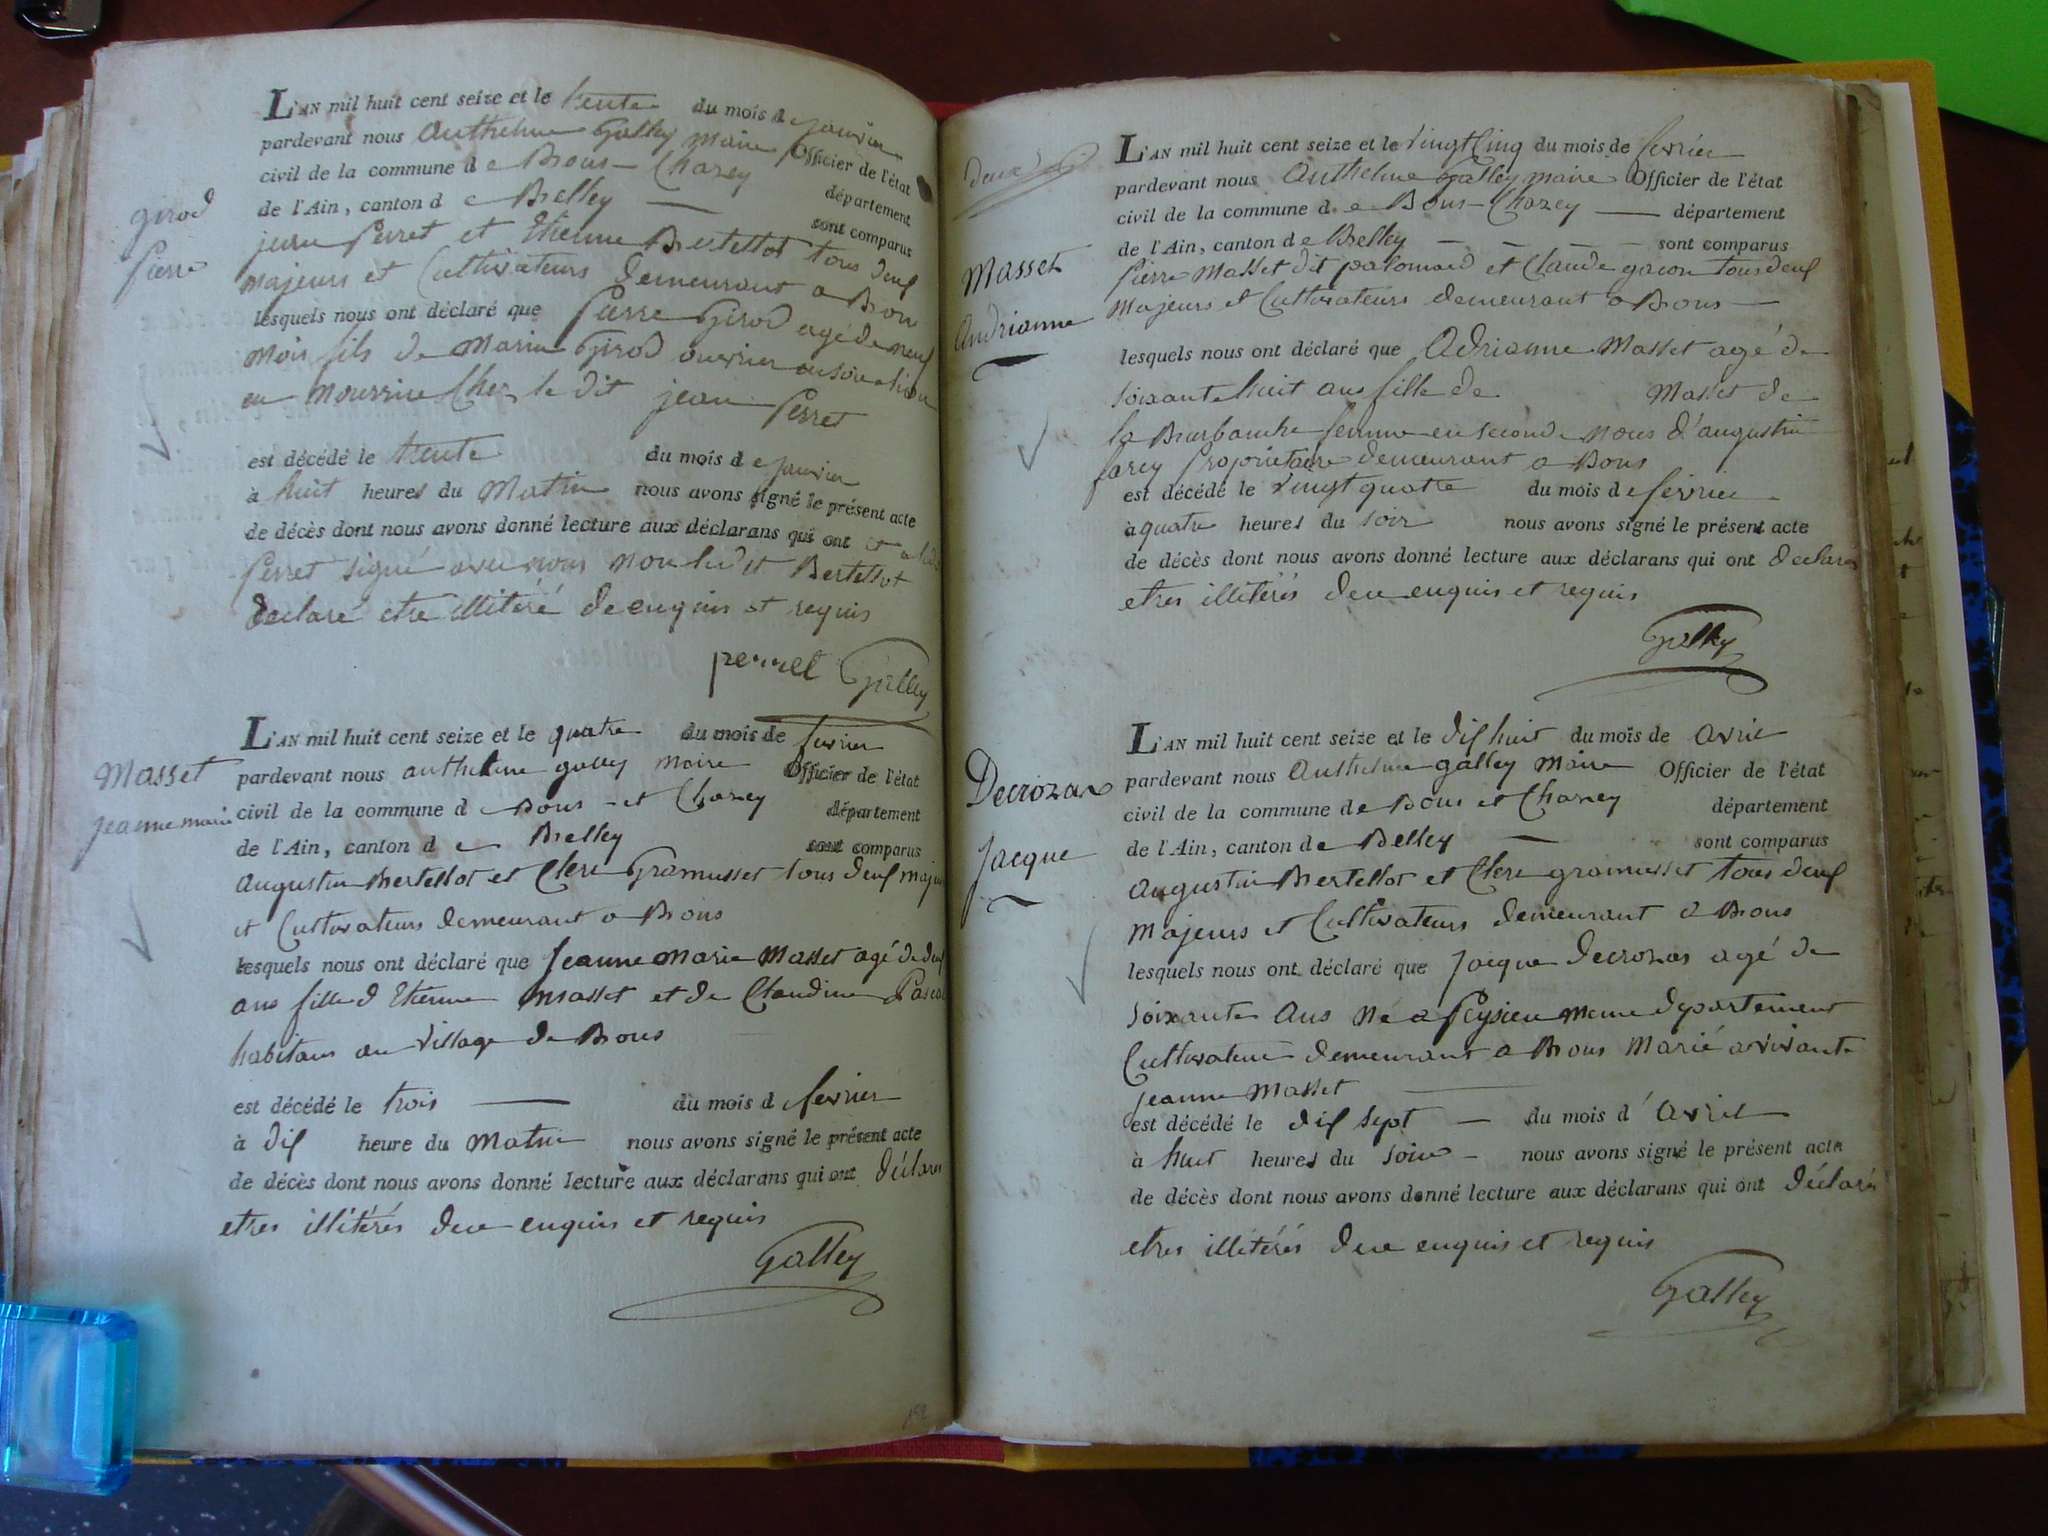 L'AN mil huit cent seize et le trente du mois de janvier
pardevant nous Anthelme Galley maire Officier de l'état
civil de la commune de Bons-Chazey département
de l'Ain, canton de Belley — sont comparus
girod
pierre
jean Perret et Etienne Bertellot tous deux
majeurs et Cultivateurs demeurant a Bons
lesquels nous ont déclaré que Pierre Girod agé de neuf
mois fils de Marie Girod ouvrier
en nourrice Chez le dit jean Perret
est décédé le trente du mois de janvier
à huit heures du Matin nous avons signé le présent acte
de décès dont nous avons donné lecture aux déclarans qui ont et
Perret signé avec nous non ledit Bertellot
declaré etre illitéré de enquis et requis
perret Galley
L'AN mil huit cent seize et le quatre du mois de fevrier
Masset
jeanne marie
pardevant nous anthelme galley maire Officier de l'état
civil de la commune de Bons-et Chazey département
de l'Ain, canton de Belley sont comparus
Augustin Bertellot et Clere Gramusset tous deux majeurs
et Cultivateurs demeurant a Bons
lesquels nous ont déclaré que Jeanne marie Masset agé de deux
ans fille d Etienne Masset et de Claudine
habitans au village de Bons
est décédé le trois — du mois de fevrier
à dix heure du Matin nous avons signé le présent acte
de décès dont nous avons donné lecture aux déclarans qui ont déclarés
etres illitérés de ce enquis et requis
Galley
deux
L'AN mil huit cent seize et le vingt cinq du mois de fevrier
pardevant nous Anthelme Galley maire Officier de l'état
civil de la commune de Bons-Chazey — département
de l'Ain, canton de Belley — — — — sont comparus
Masset
Andrianne
Pierre Masset dit palomard et Claude gacon tous deux
Majeurs et Cultivateurs demeurant a Bons —
lesquels nous ont déclaré que Adrianne Masset agé de
soixante huit ans fille de Masset de
la Burbanche femme en seconde noces d'augustin
farcy Proprietaire demeurant a Bons
est décédé le vingt quatre du mois de fevrier
à quatre heures du soir nous avons signé le présent acte
de décès dont nous avons donné lecture aux déclarans qui ont declarés
etres illitérés de ce enquis et requis
Galley
L'AN mil huit cent seize et le dix huit du mois de avril
Decrozas
Jacque
pardevant nous Anthelme galley Maire Officier de l'état
civil de la commune de Bons et Chazey département
de l'Ain, canton de Belley — sont comparus
Augustin Bertellot et Clere gramusset tous deux
Majeurs et Cultivateurs demeurant a Bons
lesquels nous ont déclaré que Jacque decrozas agé de
soixante Ans Né a Peysieu meme departement
Cultivateur demeurant a Bons Marié a vivante
jeanne Masset —
est décédé le dix sept — du mois d'Avril
à huit heures du soir — nous avons signé le présent acte
de décès dont nous avons donné lecture aux déclarans qui ont déclarés
etres illitérés de ce enquis et requis
Galley